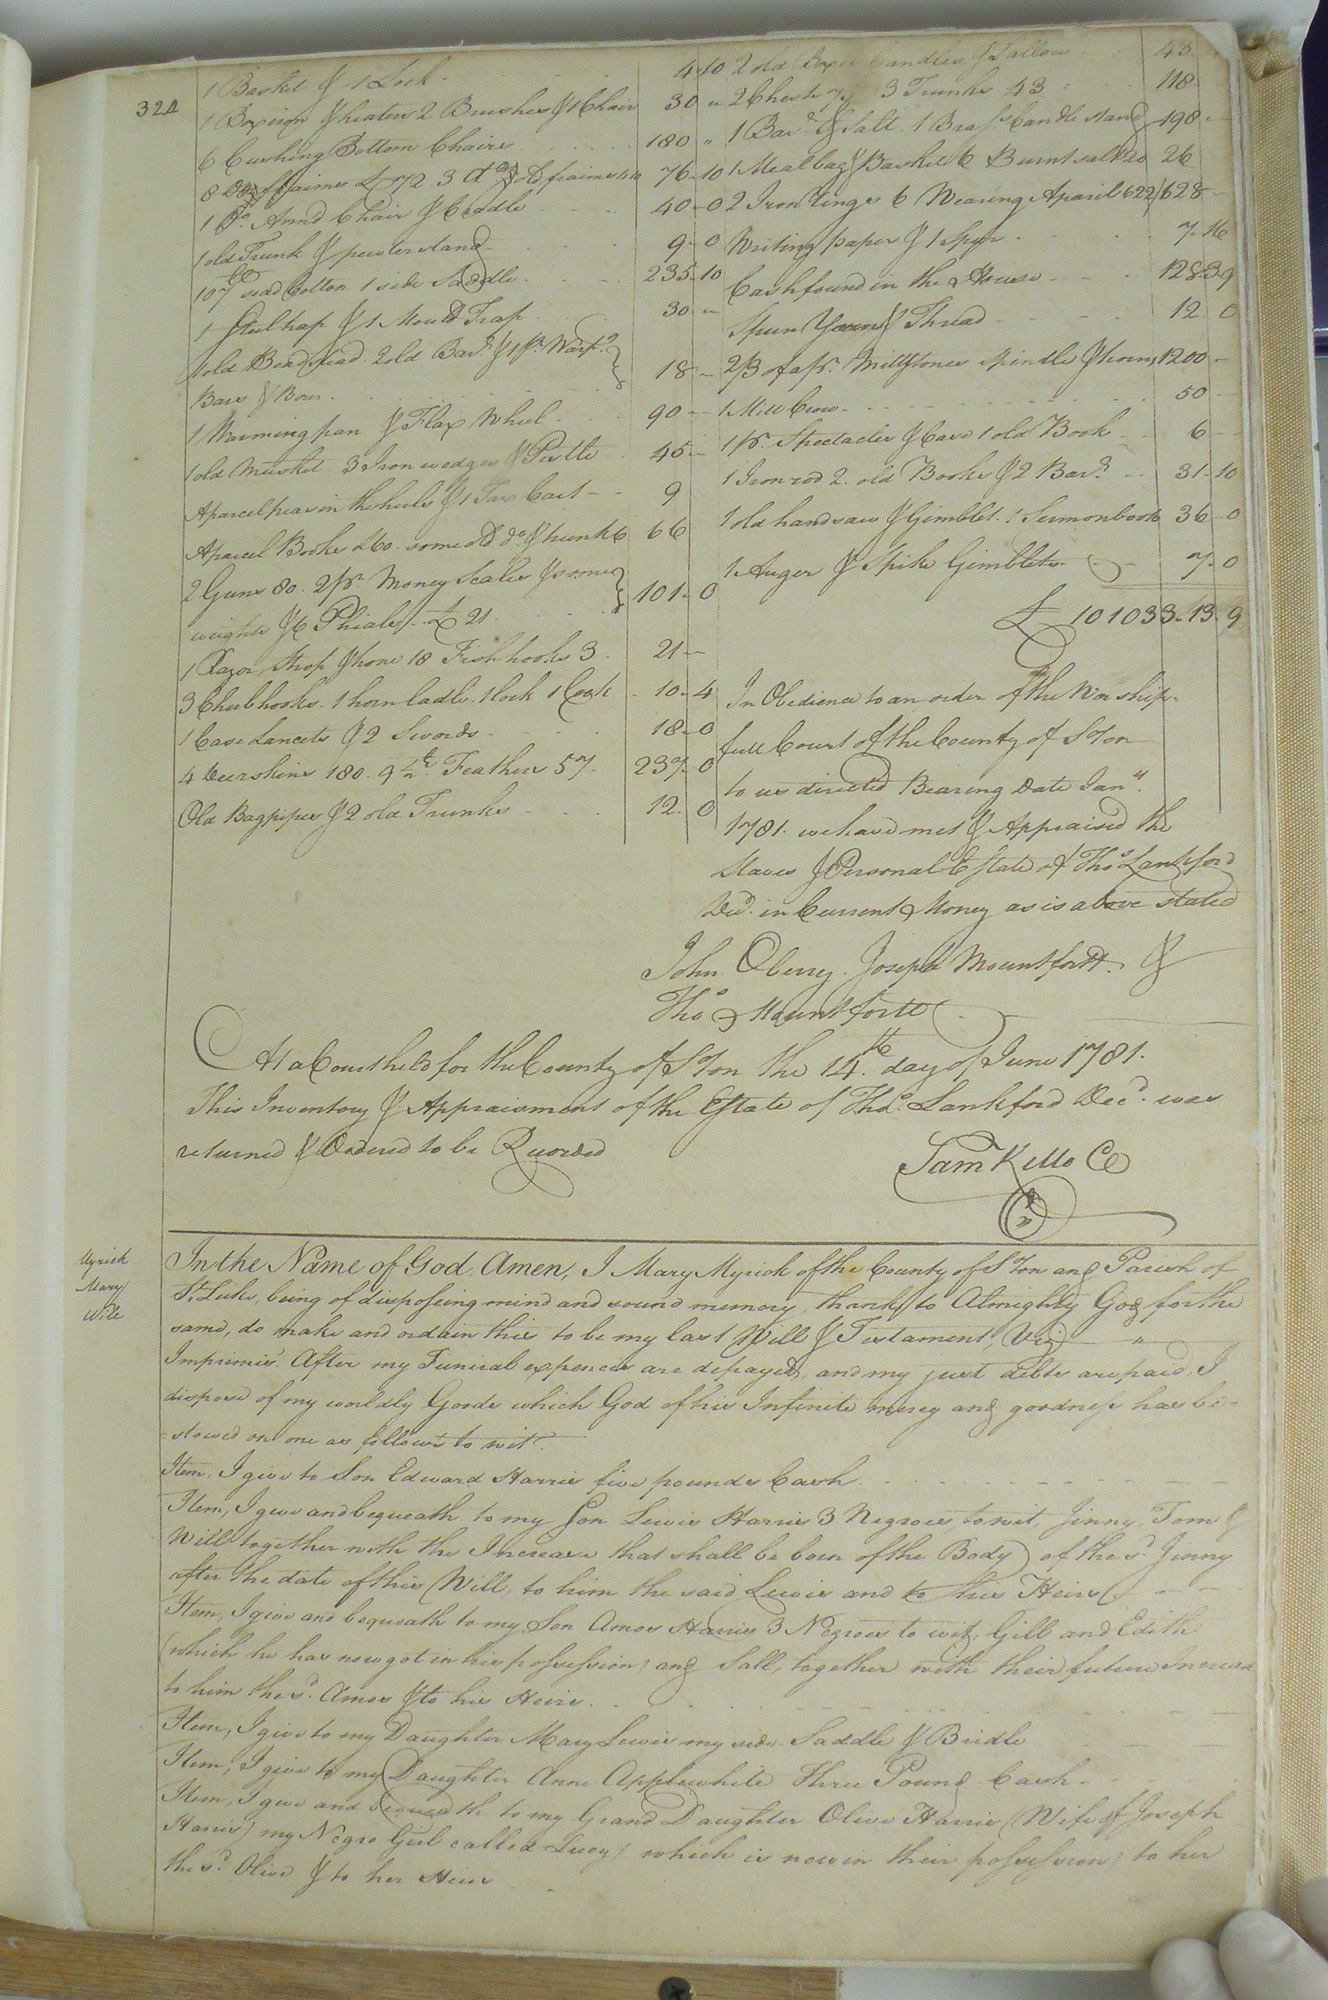 324
1 Basket & 1 Lock 4 10
1 Box iron & heaters 2 Brushes & 1 Chair 30 "
6 Cushing Bottom Chairs 180 "
8 Do fraimes £72. 3 do old fraimes 76 10
1 Do Armd Chair & Cradle 40 0
1 old Trunk & pewter stand 9 0
107 lb seed Cotton 1 side Saddle 235 10
1 Steel trap & 1 Mould Trap 30 "
1 old Beadstead. 2 old Bars. & 1 pr. Warpg.
Bars & Box 18
1 Warming pan & Flax Wheel 90
1 old Musket 3 Iron wedges & Pestle 45
A parcel peas in the hulls & 1 Tax Cart 9
A parcel Books £60. some old do. & trunk 6 66
2 Guns 80. 2 pr. Money Scales & some
weights & 6 Phials £21 101 0
1 Razor, Strop & hone 18 Fish hooks 3 21
3 Chub hooks. 1 horn ladle. 1 lock 1 Cock 10 4
1 Case Lancets & 2 Swords 18 0
4 Deerskins 180. 9 1/2 lb. Feathers 57 237 0
Old Bagpipes & 2 old Trunks 12 0
2 old Boxes Candles & Tallow 43
2 Chests 75 3 Trunks 43 118
1 Barl. & Salt. 1 Brass Candle stand 198
1 Meal bag & Basket 6 Burnt salt 20 26
2 Iron 6 Wearing Aparil 622 628
Writing paper & 1 Spyr 7 16
Cash found in the House 1283 9
Spun Yarn & Thread 12 0
2/3 of a pr. Millstones spindle & horns 1200
1 Mill Crow 50
1 pr. Spectacles & Case 1 old Book 6
1 Iron rod 2 old Books & 2 Bars. 31 10
1 old handsaw & Gimblet. 1 Sermon book 36 0
1 Auger & Spike Gimblets 7 0
£ 101033 13 9
In Obedience to an order of the Worship-
full Court of the County of Soton
to us directed Bearing date Jany.
1781. we have met & Appraised the
Slaves & Personal Estate of Thos. Lankford
Decd. in Current Money as is above stated
John Oberry. Joseph Mountfortt. &
Thos Mountfortt
At a Court held for the County of Soton the 14th. day of June 1781.
This Inventory & Appraisment of the Estate of Thos. Lankford Decd. was
returned & Ordered to be Recorded
Sam Kello Ce
Myrick
Mary
Will
In the Name of God, Amen, I Mary Myrick of the County of Soton and Parish of
St. Luke, being of disposeing mind and sound memory, thanks to Almighty God for the
same, do make and ordain this to be my last Will & Testament, Viz
Imprimis. After my Funeral expences are defrayed, and my just debts are paid, I
dispose of my worldly Goods which God of his Infinite mercy and goodness has be=
=stowed on me as follows to wit.
Item, I give to Son Edward Harris five pounds Cash
Item, I give and bequeath to my Son Lewis Harris 3 Negroes, to wit, Jinny, Tom &
Will together with the Increase that shall be born of the Body of the sd. Jinny
after the date of this Will, to him the said Lewis and to his Heirs
Item, I give and bequeath to my Son Amos Harris 3 Negroes to wit, Gill and Edith
(which he has now got in his possession) and Sall, together with their future Increase
to him the sd. Amos & to his Heirs.
Item, I give to my Daughter Mary Lewis my side Saddle & Bridle
Item, I give to my Daughter Anne Applewhite three Pound Cash
Item, I give and bequeath to my Grand Daughter Olive Harris (Wife of Joseph
Harris) my Negro Girl called Lucy (which is now in their possession) to her
the sd. Olive & to her Heirs